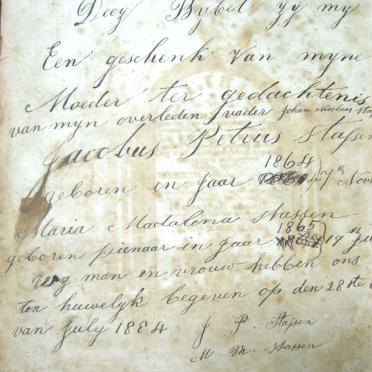 Deez Bybel zy my
Een geschenk van myne
Moeder ter gedachtenis
van myn overleden vader Johan
Jacobus Petrus Stassen
1864
geboren in jaar 7th Nove
Maria Madalena Stassen
1865
geboren pienaar in jaar 19
man en vrouw hebben ons
ten huwelyk begeven op den 28ste
van July 1884
J. P. Stassen
M. M. Stassen